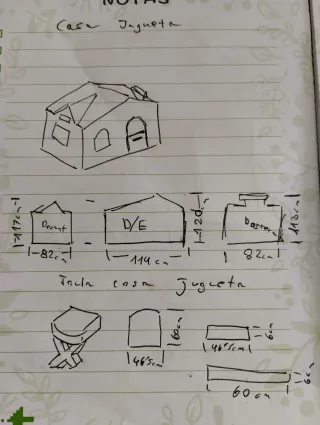 NOTAS
Casa Jugueta
117cm
Davant
D/E
120cm
113cm
82cm
114cm
82cm
Taula casa jugueta
60cm
46'5cm
46'5cm
6cm
60cm
6cm